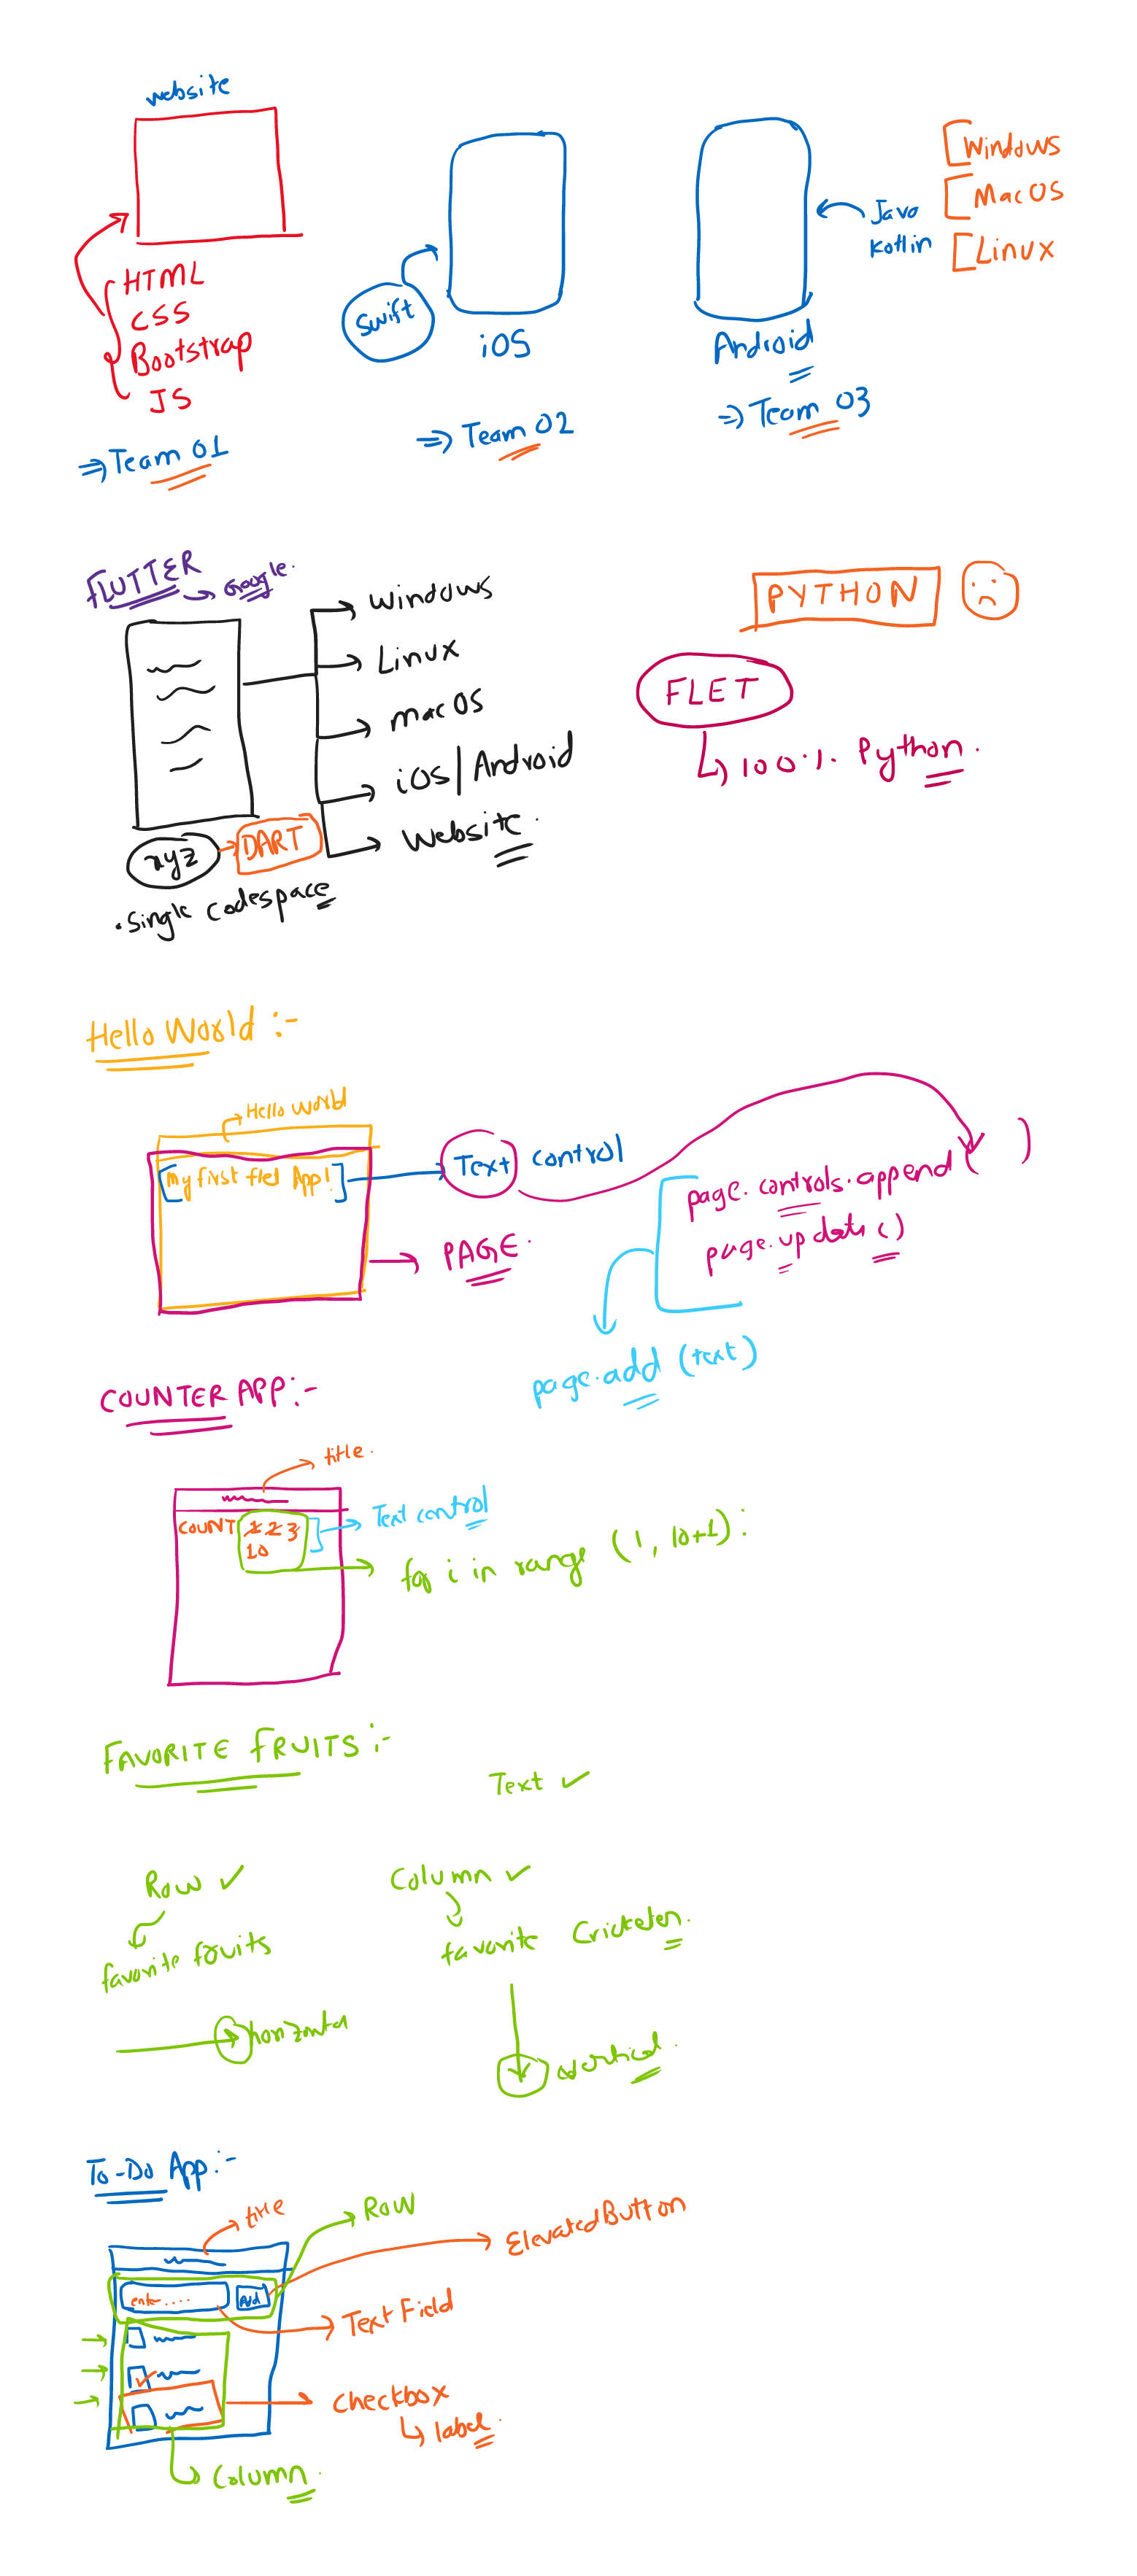 website
HTML
CSS
Bootstrap
JS
⇒ Team 01
Swift
iOS
⇒ Team 02
Java
Kotlin
Android
⇒ Team 03
Windows
MacOS
Linux
FLUTTER
→ Google.
Windows
Linux
macOS
iOS | Android
Website.
xyz → DART
• Single Codespace
PYTHON
FLET
↳ 100% Python.
Hello World :-
→ Hello World
[My first flet App!]
Text control
→ PAGE.
page.controls.append( )
page.update()
page.add (text)
COUNTER APP:-
title.
COUNT 1 2 3
10
Text control
for i in range (1, 10+1):
FAVORITE FRUITS :-
Text ✓
Row ✓
favorite fruits
→ horizontal
Column ✓
favorite Cricketer.
vertical.
To-Do App:-
title
Row
ElevatedButton
enter....
Add
TextField
checkbox
↳ label.
Column.